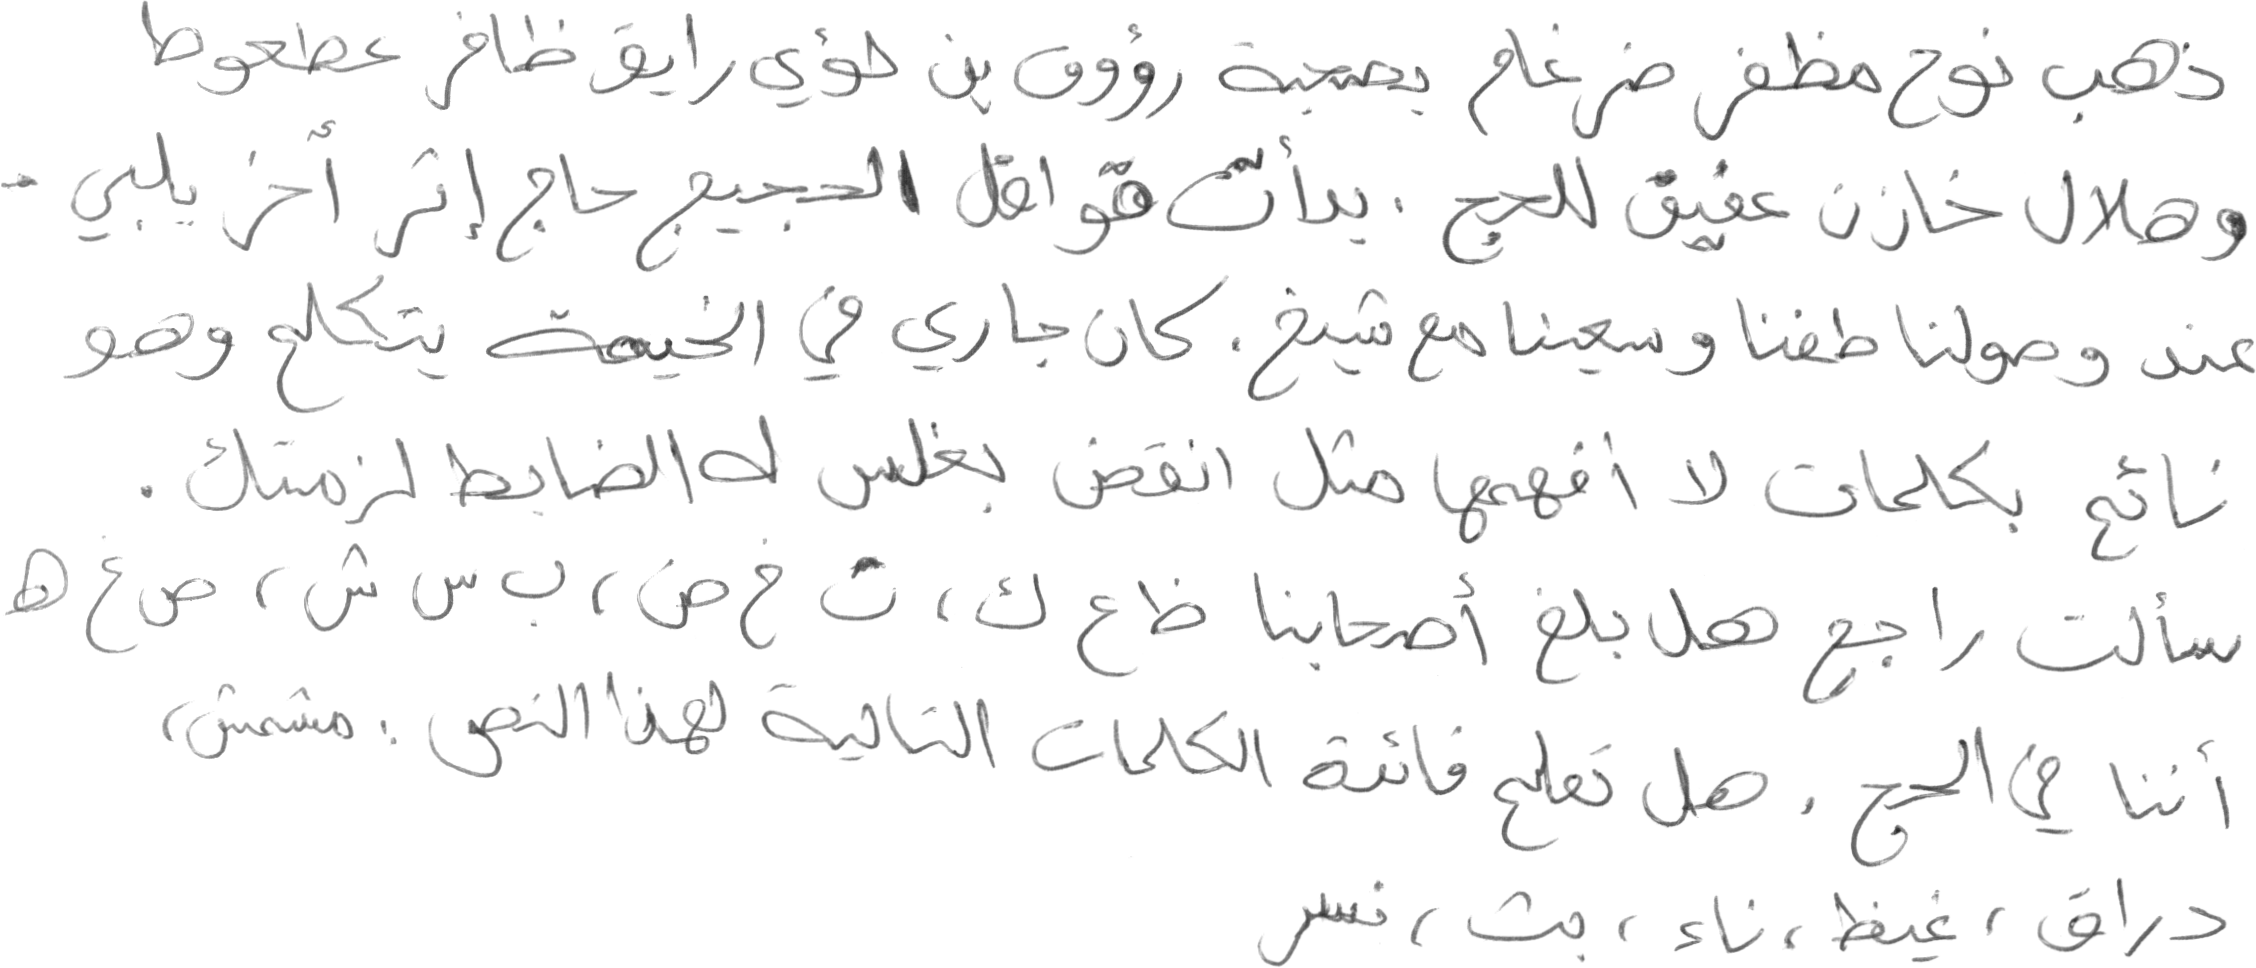 ذهب نوح مظفر ضرغام بصحبة رؤوف بن لؤي رايق ظافر عطعوط
وهلال خازن عفيق للحج . بدأت قوافل الحجيج حاج إثر أخر يلبي .
عند وصولنا طفنا وسعينا مع شيخ . كان جاري في الخيمة يتكلم وهو
نائم بكلمات لا أفهمها مثل انقض بغلس له الضابط لزمتك .
سألت راجع هل بلغ أصحابنا ظ ع ك ، ث خ ض ، ب س ش ، ص غ ه
أننا في الحج . هل تعلم فائدة الكلمات التالية لهذا النص : مشمش ،
دراق ، غيظ ، ناء ، بث ، نسر